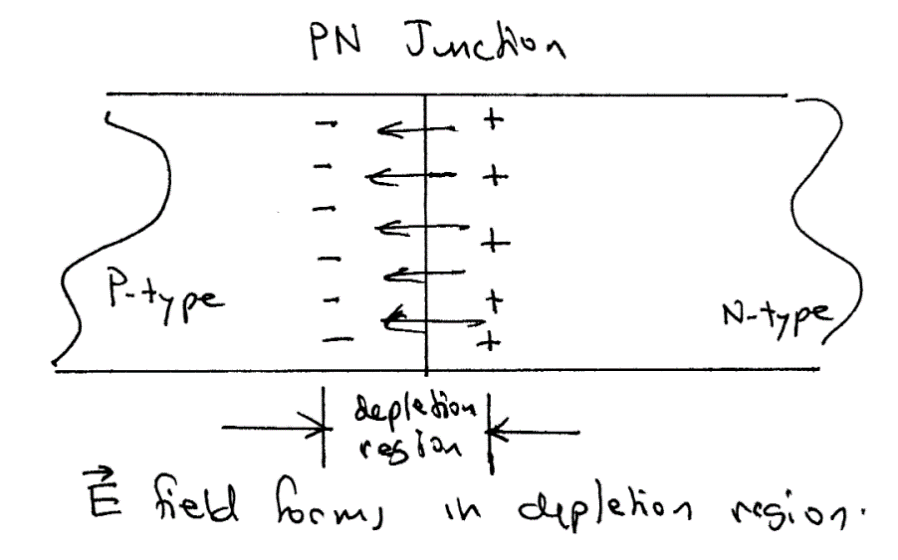 PN Junction
- +
- +
-
+
-
- +
- +
P-type
N-type
depletion
region
E field forms in depletion region.